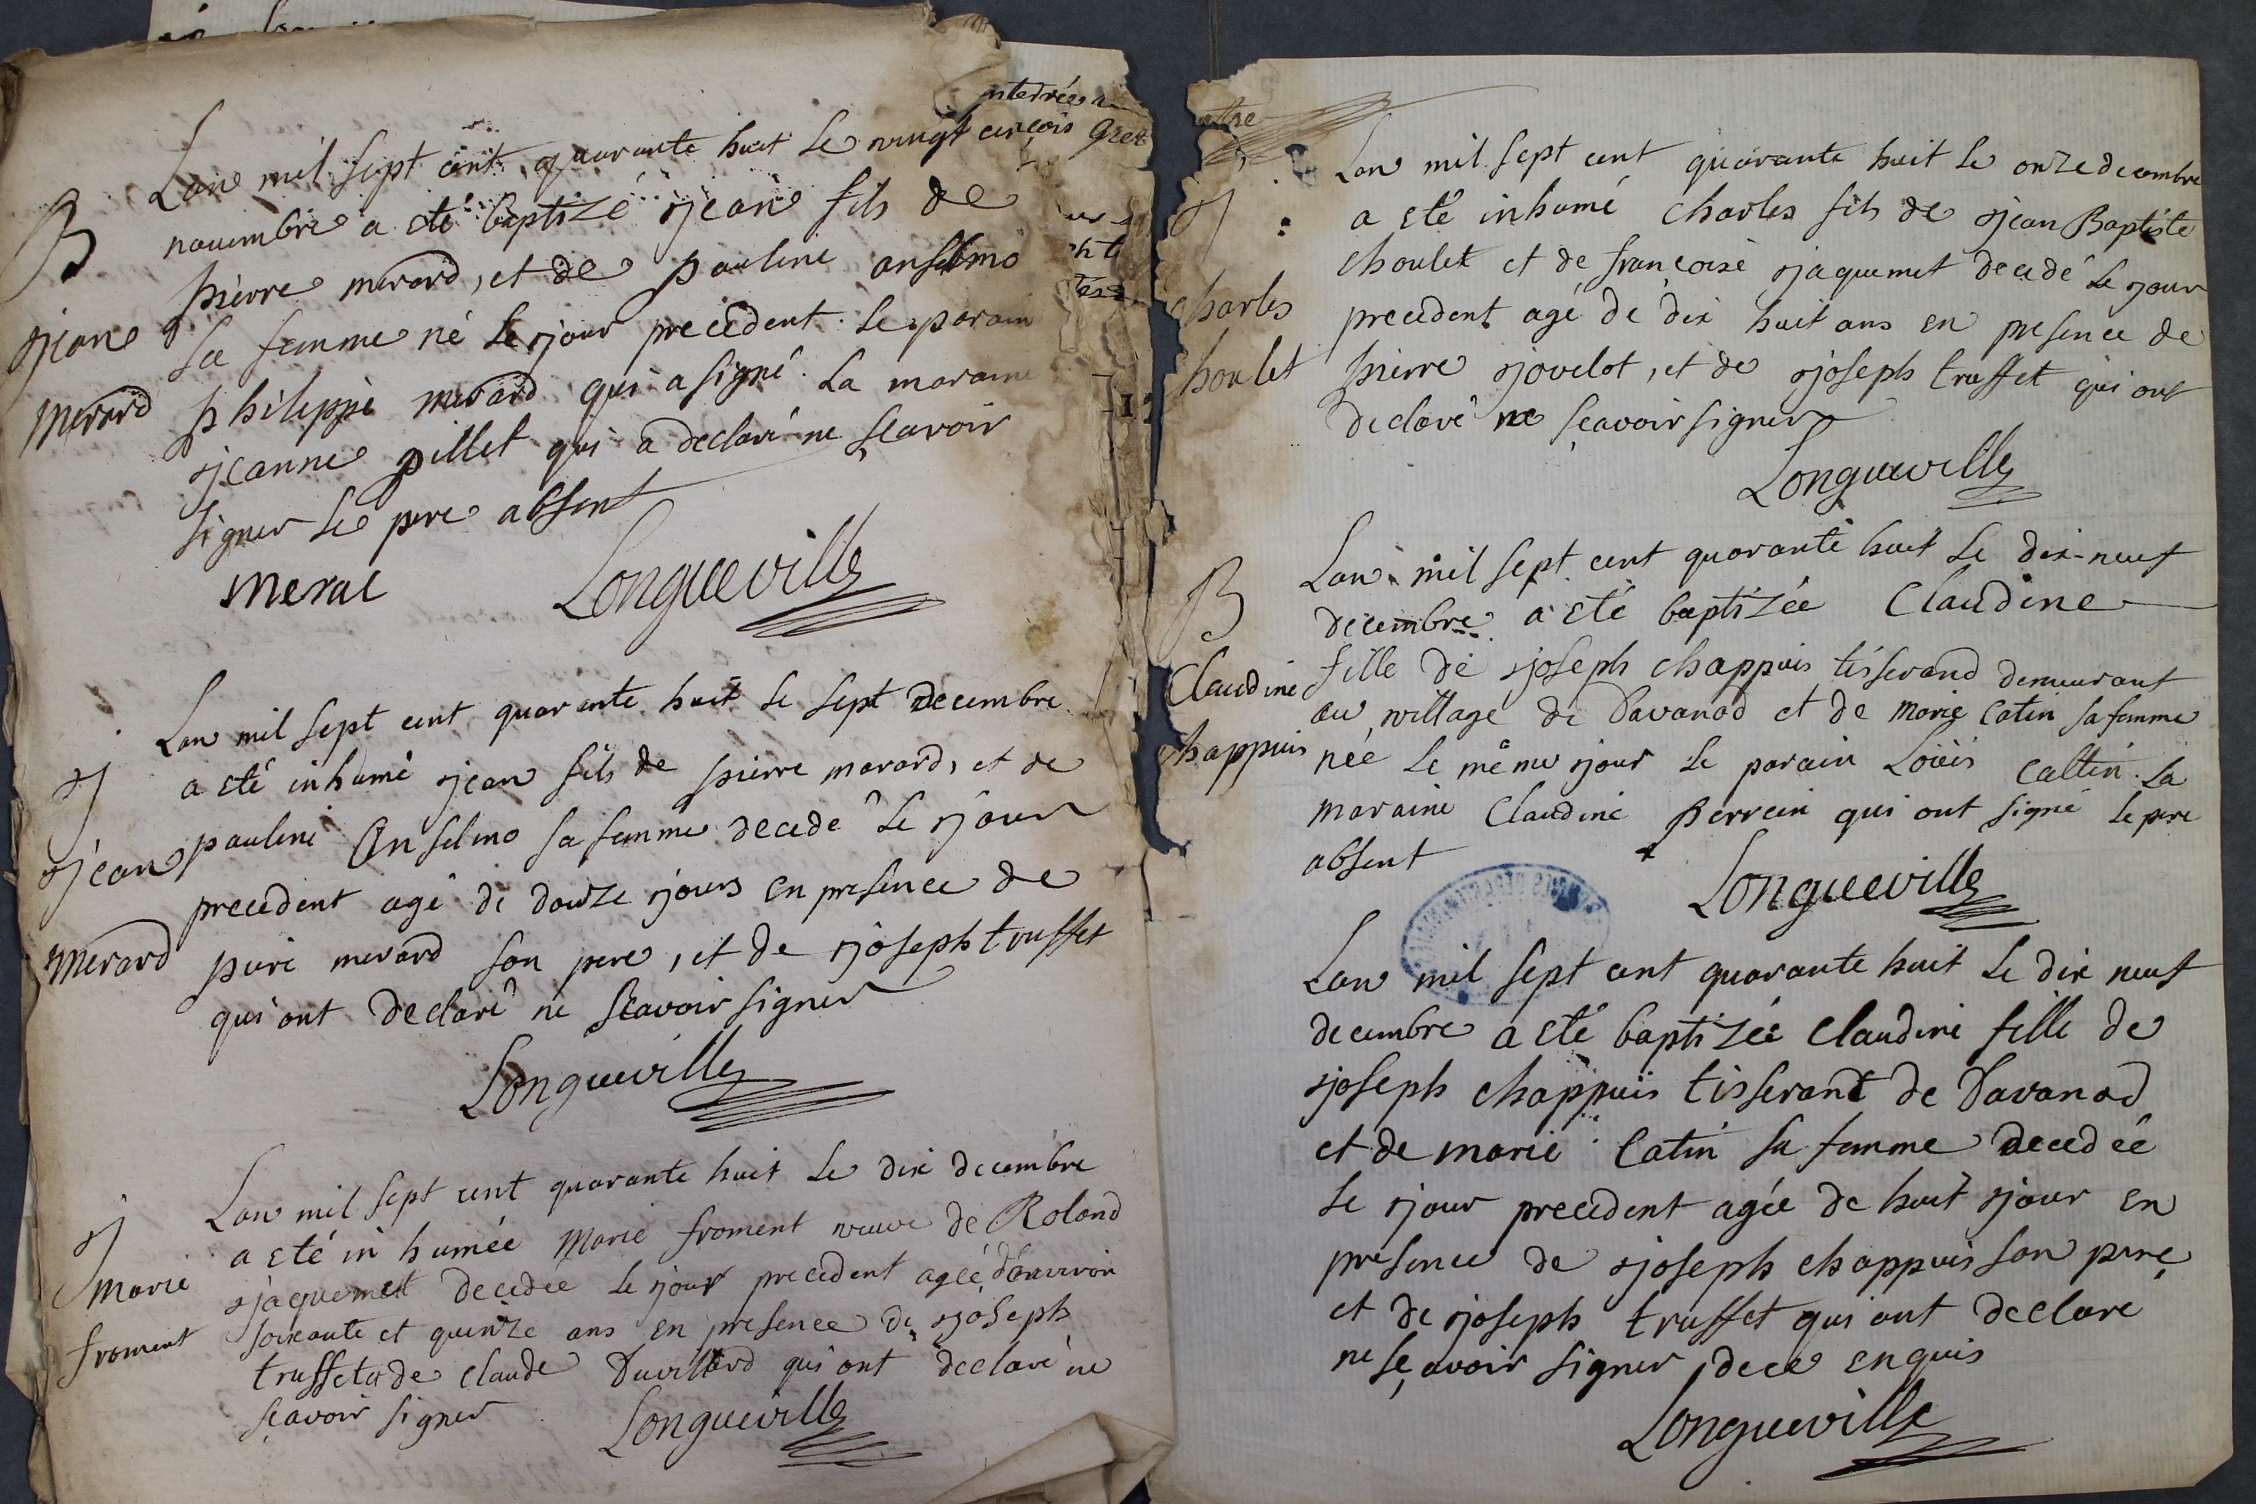 Lan mil sept cent quarante huit le vingt cinq
B
novembre a eté baptizé jean fils de
pierre merard, et de pauline anselmo
jean
sa femme né le jour precedent le parain
merard
philippe merard qui a signé. La maraine
jeanne pillet qui a declaré ne sçavoir
signer le pere absent
Longueville
Lan mil sept cent quarante huit le sept decembre
j
a eté inhumé jean fils de pierre merard, et de
pauline Anselmo sa femme decedé le jour
jean
precedent agé de douze jours en presence de
merard
piere merard son pere, et de joseph truffet
qui ont declaré ne sçavoir signer
Longueville
Lan mil sept cent quarante huit le dix decembre
j
a eté inhumée Marie froment veuve de Roland
marie
jaquemet decedée le jour precedent agée d'environ
froment
soixante et quinze ans en presence de joseph
truffet et de claude Duvillard qui ont declaré ne
sçavoir signer
Longueville
Lan mil sept cent quarante huit le onze decembre
j
a eté inhumé charles fils de jean Baptiste
choulet et de françoise jaquemet decedé le jour
charles
precedent agé de dix huit ans en presence de
houlet
pierre jovelot, et de joseph truffet qui ont
declaré ne sçavoir signer
Longueville
Lan mil sept cent quarante huit le dix-neuf
B
decembre a eté baptizée Claudine
fille de joseph chappuis tisserand demeurant
Claudine
au village de Davanod et de Marie Catin sa femme
happuis
née le même jour le parain Loüis Cattin. La
maraine Claudine Perrein qui ont signé le pere
absent
Longueville
Lan mil sept cent quarante huit le dix neuf
decembre a eté baptizée Claudine fille de
joseph chappuis tisserant de Davanod
et de marie Catin sa femme decedée
le jour precedent agée de huit jour en
presence de joseph chappuis son pere
et de joseph truffet qui ont declare
ne sçavoir signer, de ce enquis
Longueville